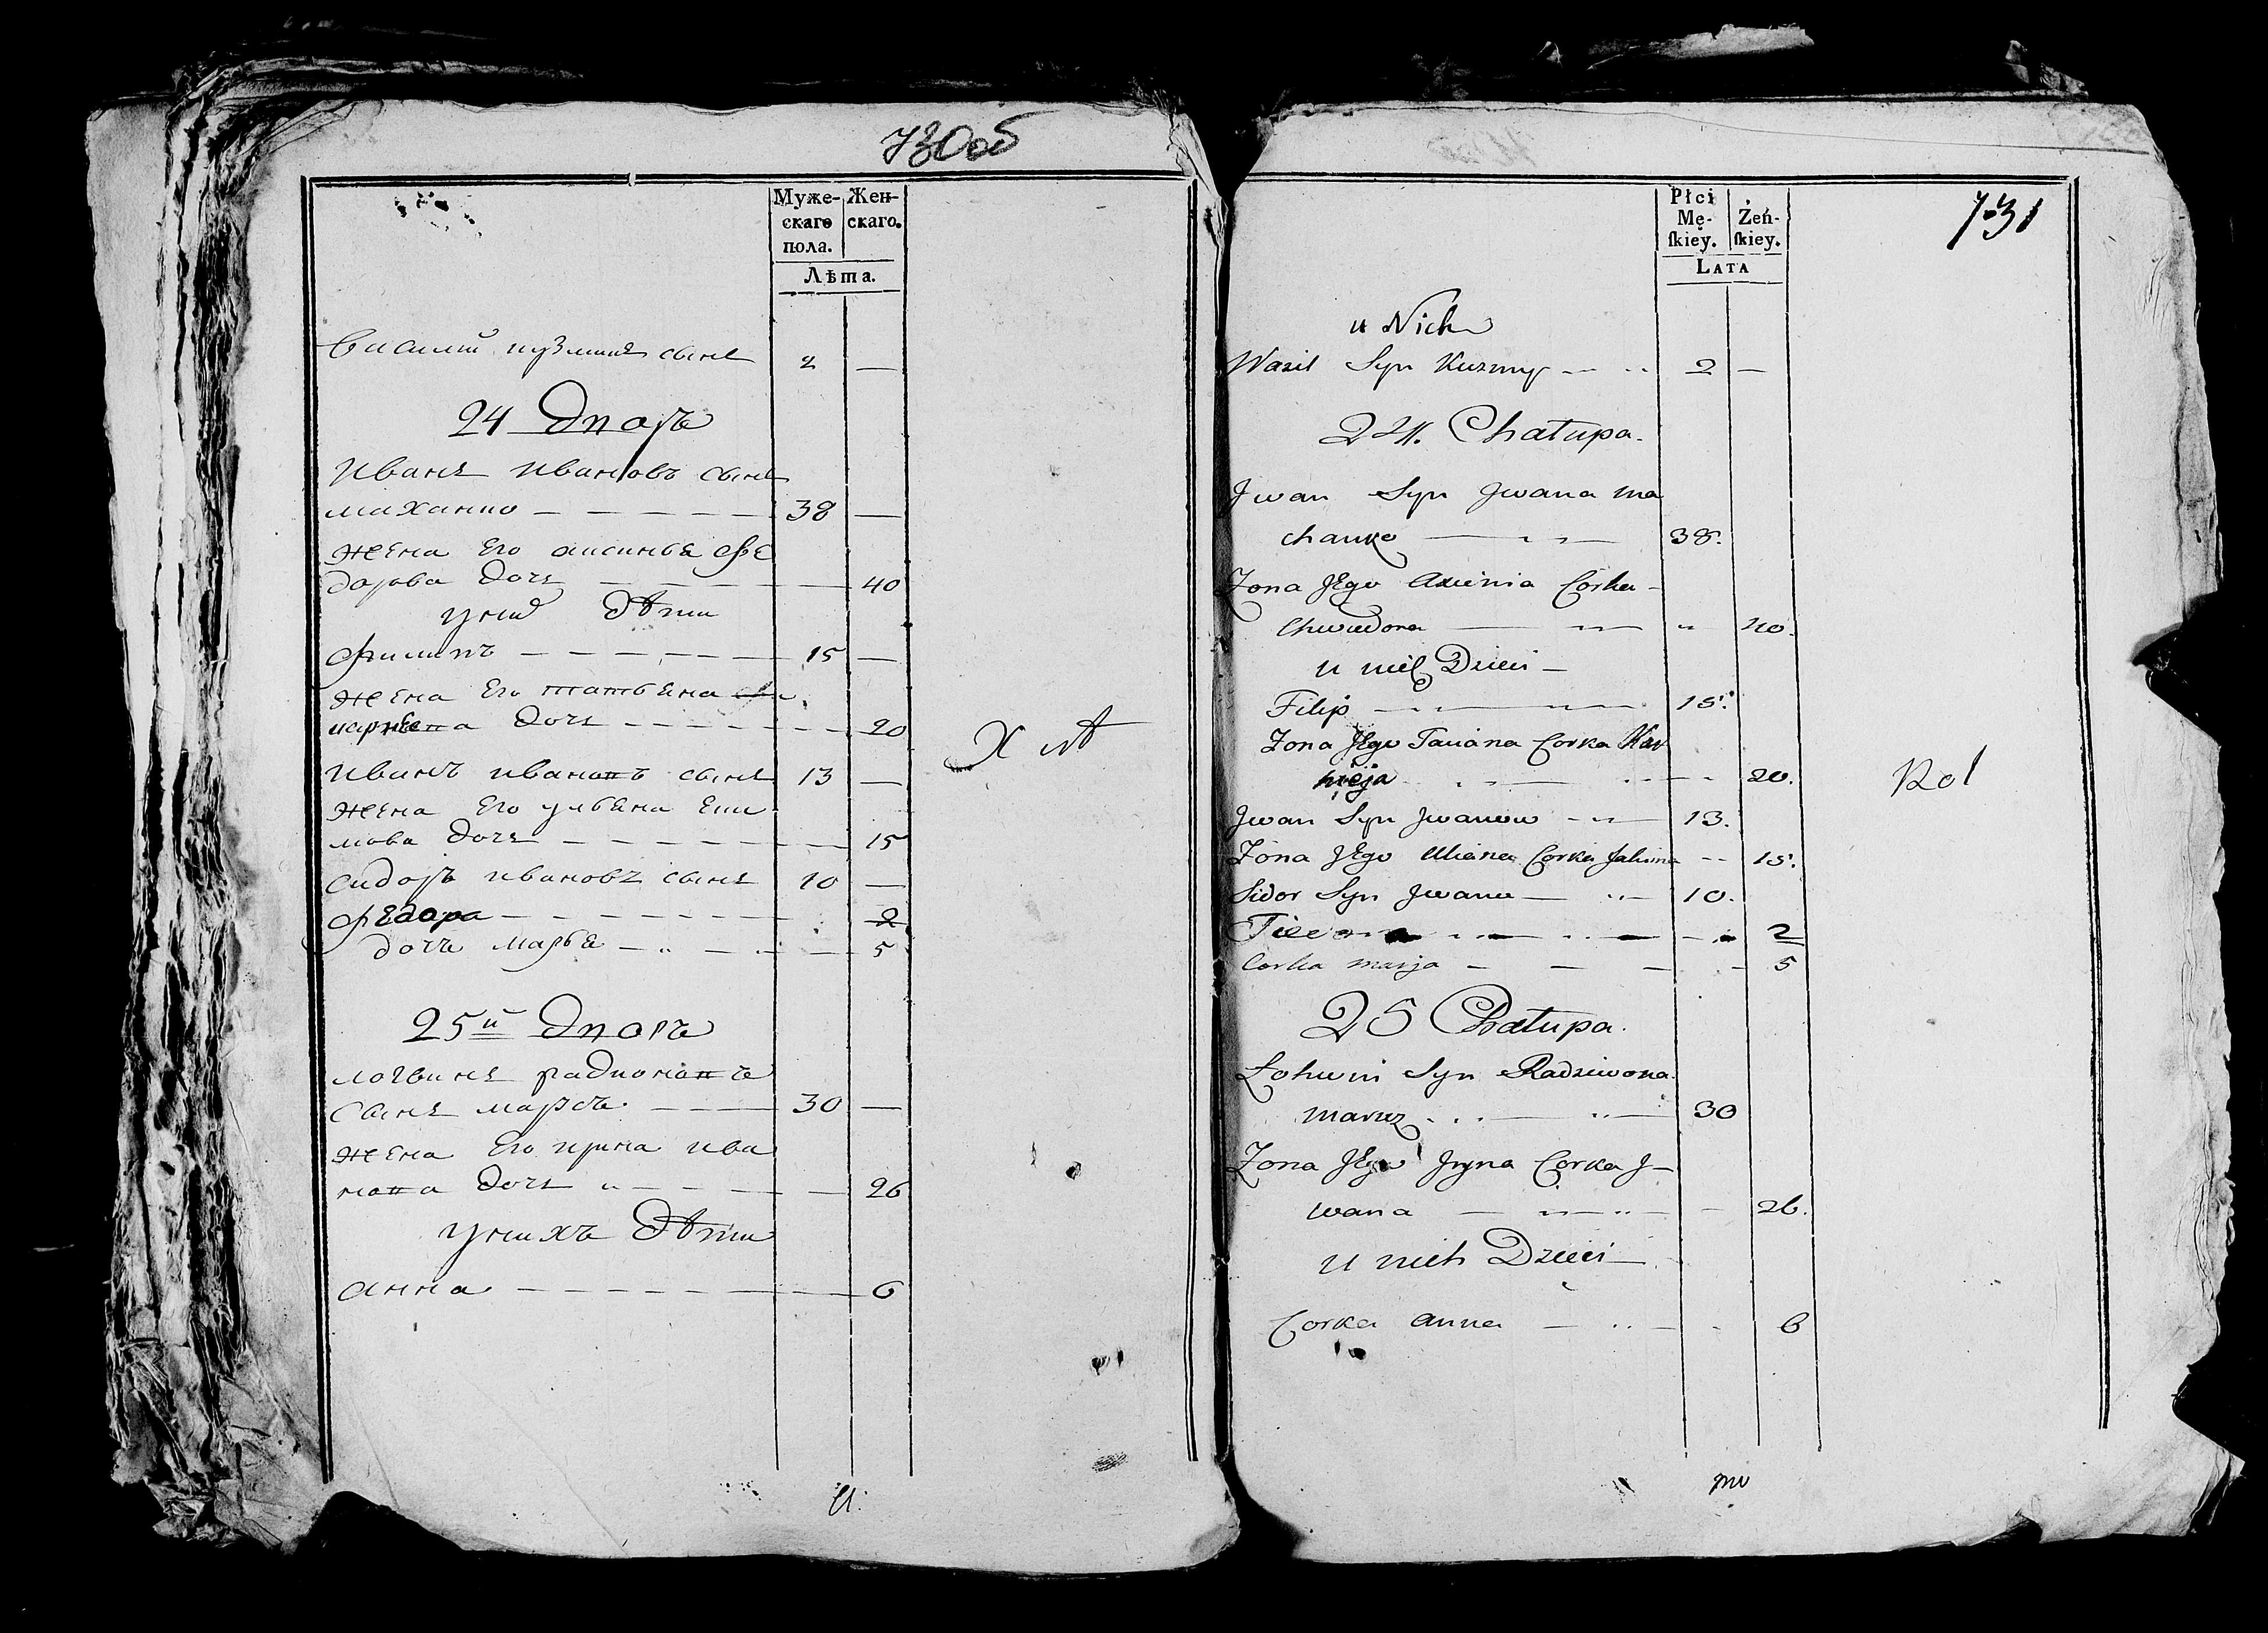 730об
Муже-
скаго
пола.
Жен-
скаго.
Лѣта.
Василий кузминъ сынъ 2 —
24 Дворъ
Иванъ Ивановъ сынъ
Маханко — — — — 38 —
жена Его аксинья Фе
дорова дочь — — — 40
у них Дѣти
Филипъ — — — — — 15 —
жена Его татьяна
карнеева дочь — — — — 20
Иванъ ивановъ сынъ 13 —
жена Его ульяна
мова дочь — — — — — 15
Сидоръ ивановъ сынъ 10 —
Федора — — — — — — 2
дочь Марья — — — — 5
25й Дворъ
Логвинъ радионовъ
сынъ — — 30 —
жена Его ирина ива
нова дочь — — — — 26
у нихъ Дѣти
анна — — — — — — 6
731
Płci
Mę-
ſkiey.
Żeń-
ſkiey.
LATA
u Nich
Wasil Syn Kuzmy — 2 —
24. Chałupa.
Jwan Syn Jwana Ma
chanko — 38.
Zona Jego Axienia Corka —
Chwiedora — 40.
u nich Dzieci —
Filip — 15.
Zona Jego Taciana Corka Kar
nieja — 20.
Jwan Syn Jwanow — 13.
Zona Jego Uliana Corka Jakima — 15.
Sidor Syn Jwana — 10.
— 2
Corka marja — — — 5
25 Chałupa.
Łohwin Syn Radziwona
— 30
Zona Jego Jryna Corka J—
wana — 26.
u nich Dzieci —
Corka anna — 6